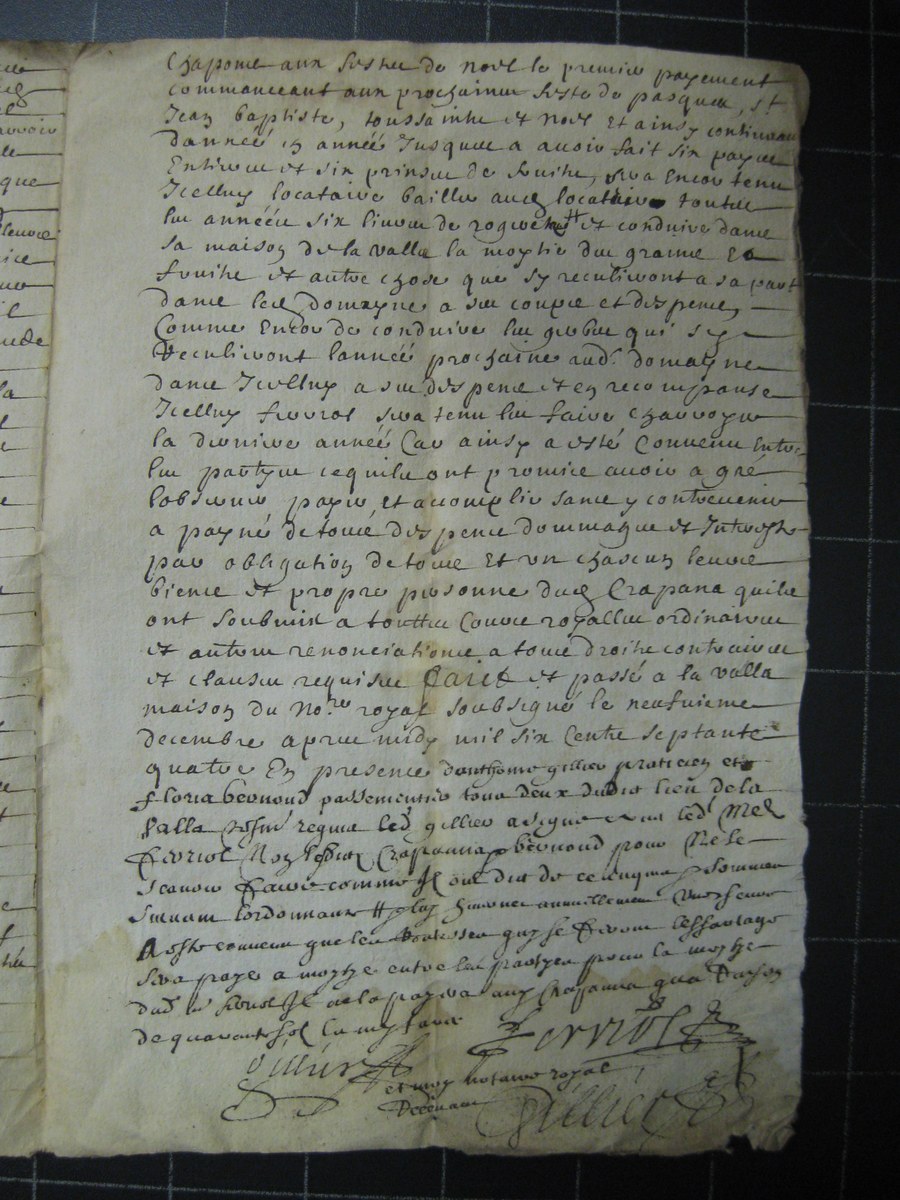 chapons aux festes de noel le premier payement
commanceant aux prochaines feste de pasques, st
Jean baptiste, toussainctz et noel et ainsy continuer
dannée en année Jusques a avoir fait six payes
Entieres et six prinses de fruitz, sera Encor tenu
Icelluy locataire bailler aud locateur toutes
les années six livres de et conduire dans
sa maison de la valla la moytie des grains Et
fruitz et autre chose que sy recullieront a sa part
dans led domayne a ses coups et despens
Comme Encor de conduire les gerbes qui se
Reculliront lannée prochaine aud. domayne
dans Icelluy a ses despens et en recompanse
Icelluy ferriol sera tenu les faire charroyer
la derniere année Car ainsy a esté Convenu Entre
les partyes lesquels ont promis avoir a gré
lobserver payer et accomplir sans y contrevenir
a payne de tous despens dommages et Interestz
par obligation de tous Et un chascun leurs
biens et propre personne dud Crapana quilz
ont soubmis a touttes Cours royalles ordinaires
et autres renonciations a tous droitz contraires
et clauses requises Faict et passé a la valla
maison du No.re royal soubsigné le neufviesme
decembre apres midy mil six Centz septante
quatre En presence danthoine gillier praticien et
floria bernoud passementier tous deux dudit lieu de la
Valla led gillier a signé led
ferriol Non led Crapanna bernoud pour Ne le
scavoir faire comme Il ont dit de ce enquis sommes
suivant lordonnance
A esté convenu que les se feront
sera payé a moytye entre les partyes pour la moytye
dud ferriol Il ne la payera aux Crapanna qua Raison
de quarent sol
gillier Ferriol
et moy notaire royal
Recevant Gillier